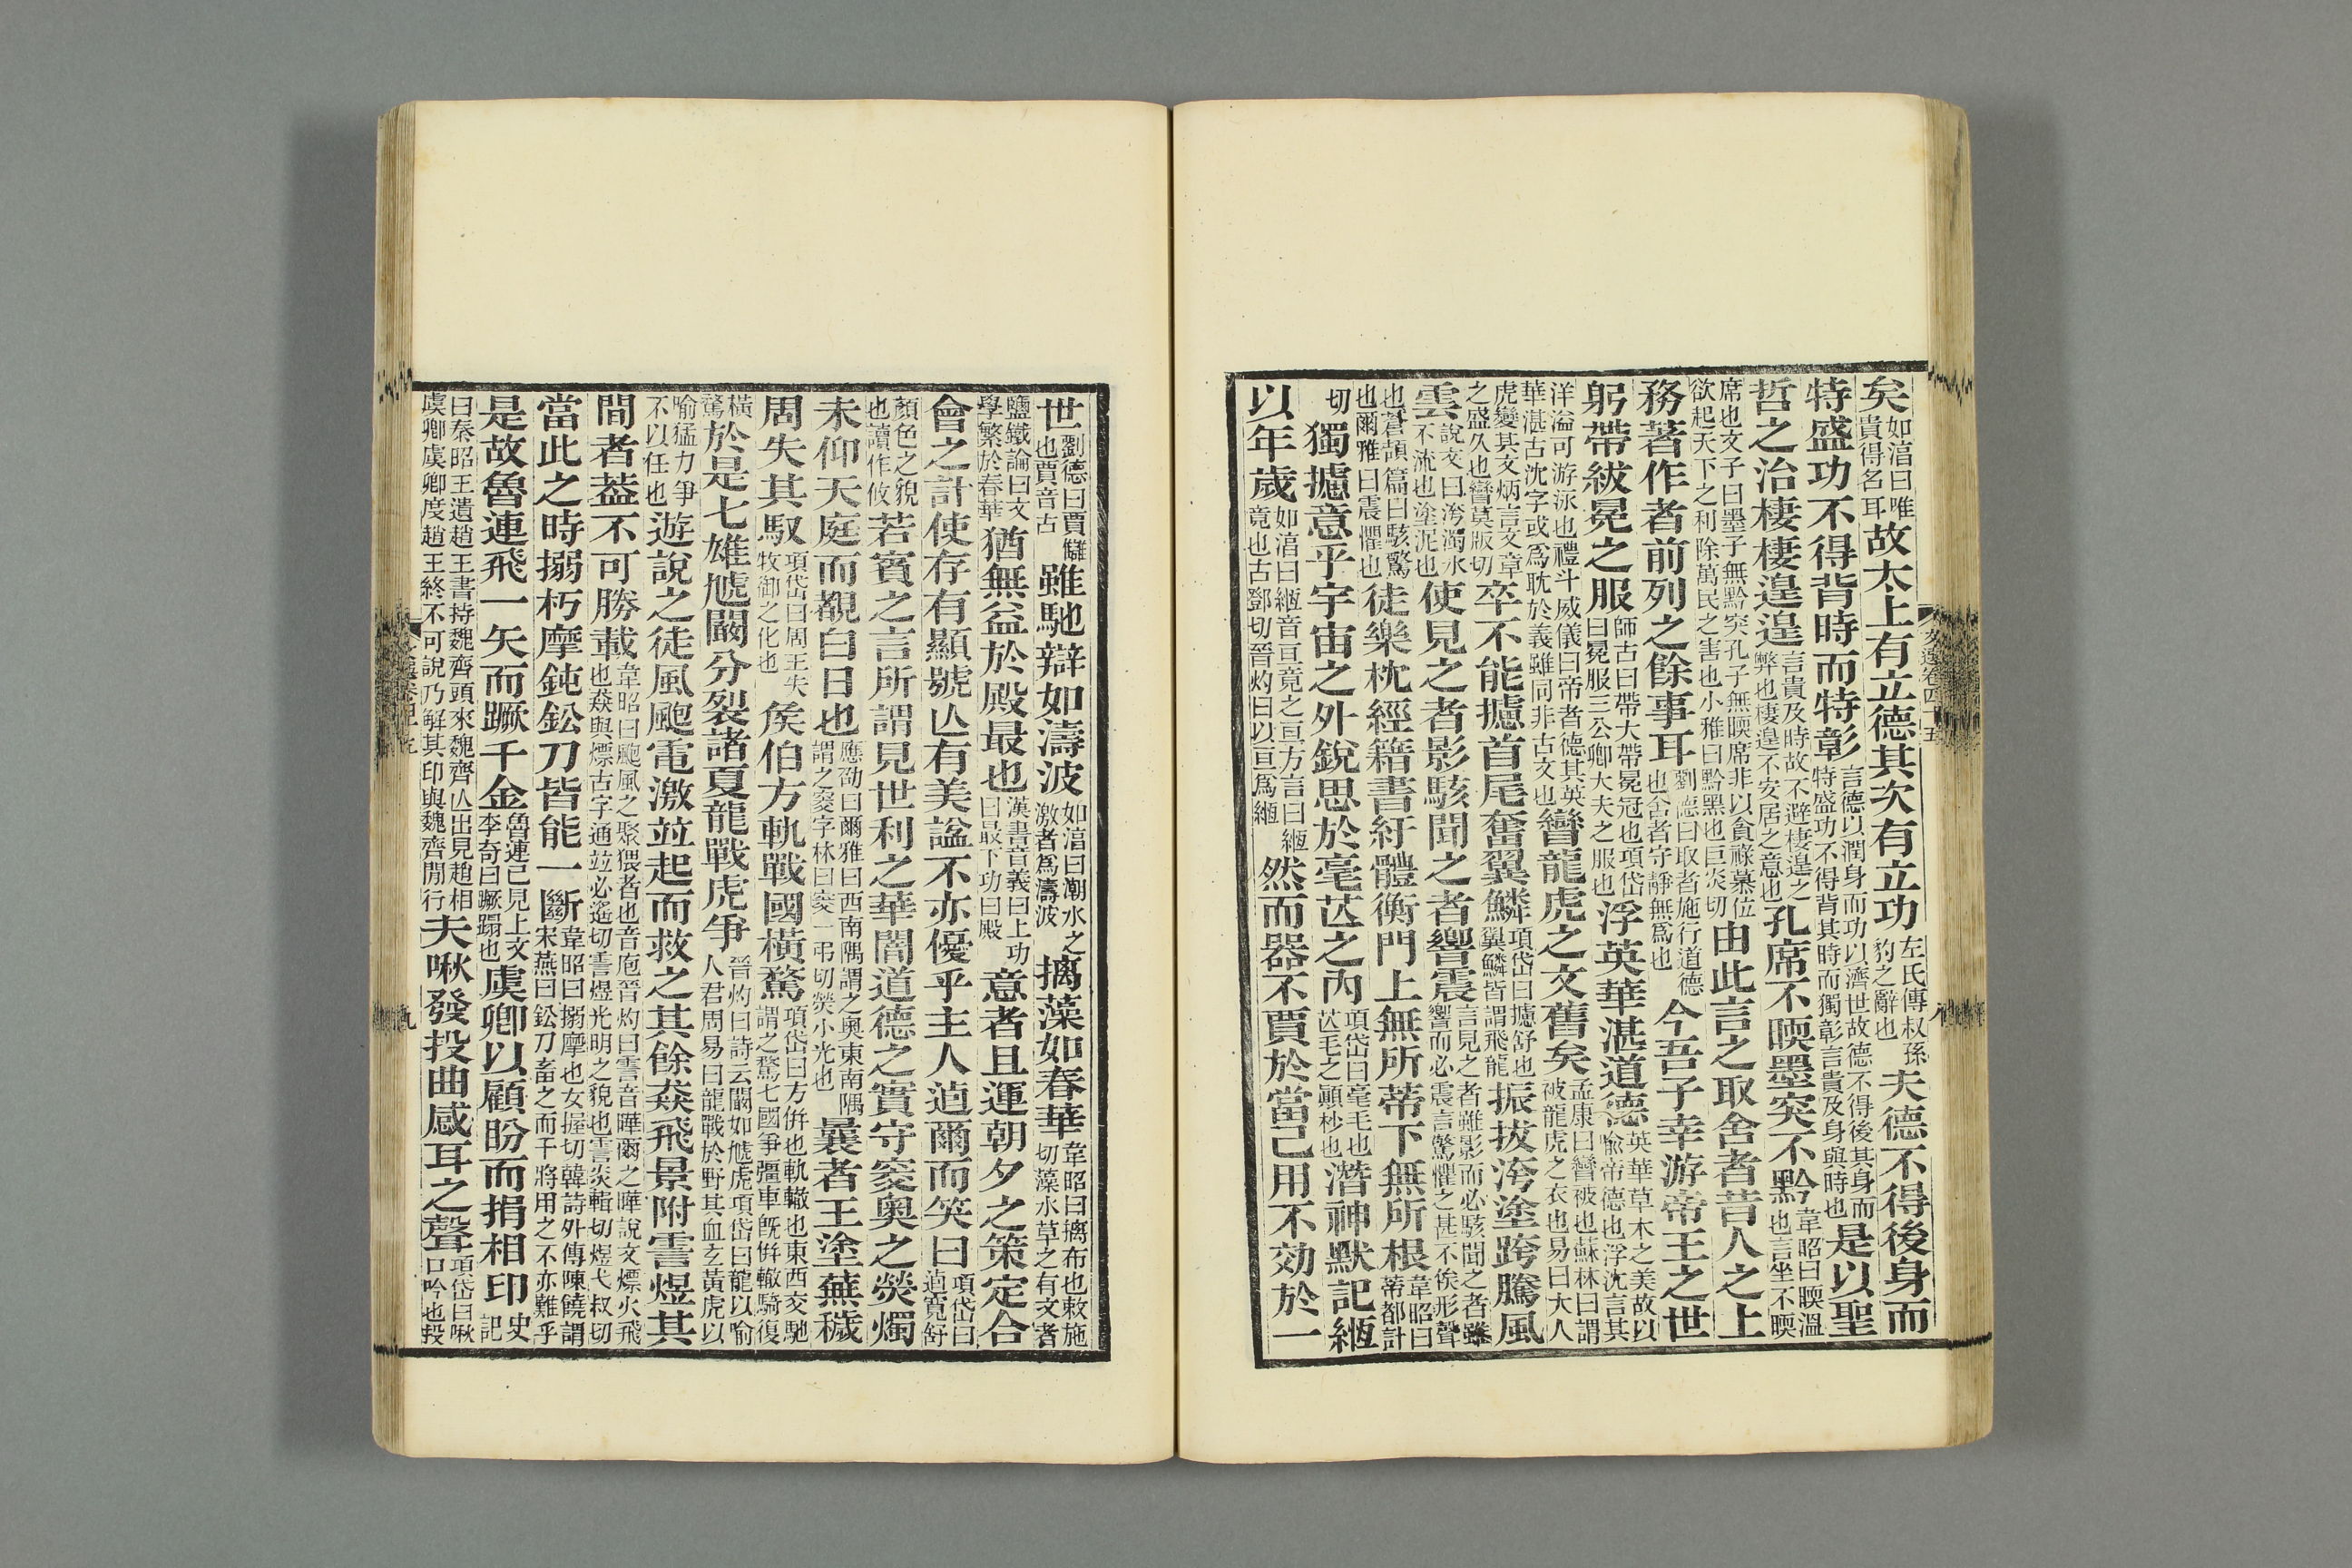 矣如淳曰唯貴得名耳故太上有立德其次有立功左氏傳叔孫豹之辭也夫德不得後身而
特盛功不得背時而特彰言德以潤身而功以濟世故德不得後其身而特盛功不得背其時而獨彰言貴及身與時也是以聖
哲之治棲棲遑遑言貴及時故不避棲遑之弊也棲遑不安居之意也孔席不暝墨突不黔韋昭曰暝溫也言坐不暝
席也文子曰墨子無黔突孔子無暝席非以貪祿慕位欲起天下之利除萬民之害也小雅曰黔黑也巨炎切由此言之取舍者昔人之上
務著作者前列之餘事耳劉德曰取者施行道德也舍者守靜無為也今吾子幸游帝王之世
躬帶紱冕之服師古曰帶大帶冕冠也項岱曰冕服三公卿大夫之服也浮英華湛道德英華草木之美故以喻帝德也浮沈言其
洋溢可游泳也禮斗威儀曰帝者德其英華湛古沈字或為耽於義雖同非古文也矕龍虎之文舊矣孟康曰矕被也蘇林曰謂被龍虎之衣也易曰大人
虎變其文炳言文章之盛久也矕莫版切卒不能攄首尾奮翼鱗項岱曰攄舒也翼鱗皆謂飛龍振拔洿塗跨騰風
雲說文曰洿濁水不流也塗泥也使見之者影駭聞之者響震言見之者雖影而必駭聞之者雖響而必震言驚懼之甚不俟形聲
也蒼頡篇曰駭驚也爾雅曰震懼也徒樂枕經籍書紆體衡門上無所蒂下無所根韋昭曰蒂都計
切獨攄意乎宇宙之外銳思於毫芒之內項岱曰毫毛也芒毛之顛杪也潛神默記緪
以年歲如淳曰緪音亘竟之亘方言曰緪竟也古鄧切晉灼曰以亘為緪然而器不賈於當己用不効於一
世劉德曰賈讎也賈音古雖馳辯如濤波如淳曰潮水之激者為濤波摛藻如春華韋昭曰摛布也敕施切藻水草之有文者
鹽鐵論曰文學繁於春華猶無益於殿最也漢書音義曰上功曰最下功曰殿意者且運朝夕之策定合
會之計使存有顯號亾有美謚不亦優乎主人逌爾而笑曰項岱曰逌寬舒
顏色之貌也讀作攸若賓之言所謂見世利之華闇道德之實守窔奧之熒燭
未仰天庭而覩白日也應劭曰爾雅曰西南隅謂之奧東南隅謂之窔字林曰窔一弔切熒小光也曩者王塗蕪穢
周失其馭項岱曰周王失牧御之化也矦伯方軌戰國橫騖項岱曰方併也軌轍也東西交馳謂之騖七國爭彊車旣併轍騎復
橫騖於是七雄虓闞分裂諸夏龍戰虎爭晉灼曰詩云闞如虓虎項岱曰龍以喻人君周易曰龍戰於野其血玄黃虎以
喻猛力爭不以任也遊說之徒風颮電激竝起而救之其餘猋飛景附霅煜其
間者葢不可勝載韋昭曰颮風之聚猥者也音庖晉灼曰霅音曄爾之曄說文熛火飛也猋與熛古字通竝必遙切霅煜光明之貌也霅炎輯切煜弋叔切
當此之時搦朽摩鈍鈆刀皆能一斷韋昭曰搦摩也女握切韓詩外傳陳饒謂宋燕曰鈆刀畜之而干將用之不亦難乎
是故魯連飛一矢而蹶千金魯連已見上文李奇曰蹶蹋也虞卿以顧盼而捐相印史記
曰秦昭王遺趙王書持魏齊頭來魏齊亾出見趙相虞卿虞卿度趙王終不可說乃解其印與魏齊閒行夫啾發投曲感耳之聲項岱曰啾口吟也投